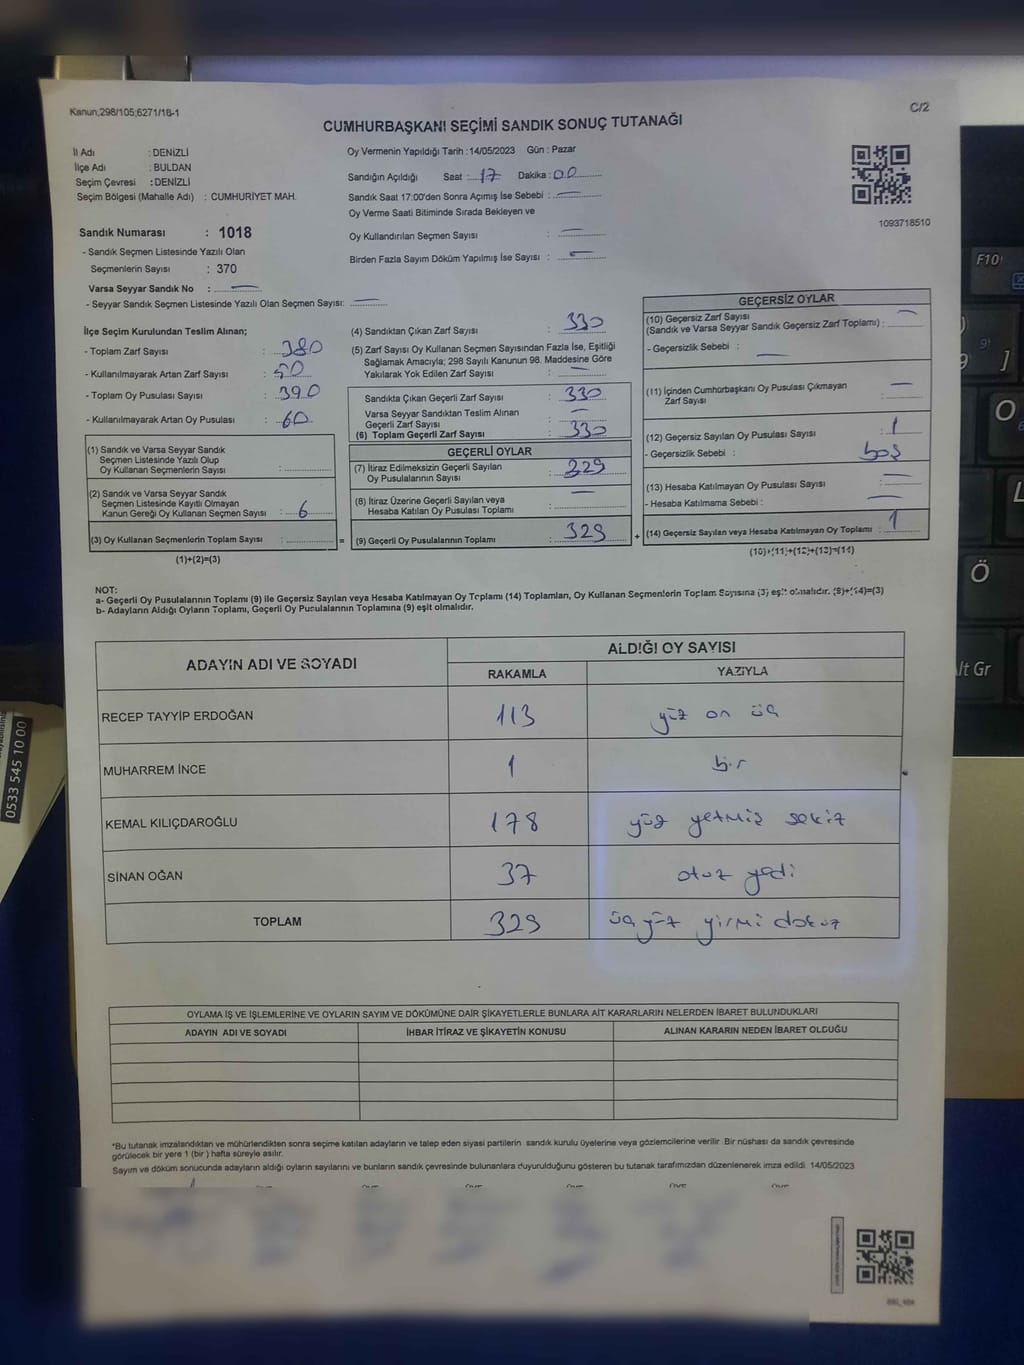 Kanun;298/105;6271/18-1
C/2
CUMHURBAŞKANI SEÇİMİ SANDIK SONUÇ TUTANAĞI
İl Adı : DENİZLİ
İlçe Adı : BULDAN
Seçim Çevresi : DENİZLİ
Seçim Bölgesi (Mahalle Adı) : CUMHURİYET MAH.
Sandık Numarası : 1018
- Sandık Seçmen Listesinde Yazılı Olan
Seçmenlerin Sayısı : 370
Varsa Seyyar Sandık No : —
- Seyyar Sandık Seçmen Listesinde Yazılı Olan Seçmen Sayısı: —
Oy Vermenin Yapıldığı Tarih : 14/05/2023 Gün : Pazar
Sandığın Açıldığı Saat : 17 Dakika : 00
Sandık Saat 17:00'den Sonra Açımış İse Sebebi : —
Oy Verme Saati Bitiminde Sırada Bekleyen ve
Oy Kullandırılan Seçmen Sayısı : —
Birden Fazla Sayım Döküm Yapılmış İse Sayısı : —
1093718510
İlçe Seçim Kurulundan Teslim Alınan;
- Toplam Zarf Sayısı : 380
- Kullanılmayarak Artan Zarf Sayısı : 50
- Toplam Oy Pusulası Sayısı : 390
- Kullanılmayarak Artan Oy Pusulası : 60
(1) Sandık ve Varsa Seyyar Sandık
Seçmen Listesinde Yazılı Olup
Oy Kullanan Seçmenlerin Sayısı :
(2) Sandık ve Varsa Seyyar Sandık
Seçmen Listesinde Kayıtlı Olmayan
Kanun Gereği Oy Kullanan Seçmen Sayısı : 6
(3) Oy Kullanan Seçmenlerin Toplam Sayısı : =
(1)+(2)=(3)
(4) Sandıktan Çıkan Zarf Sayısı : 330
(5) Zarf Sayısı Oy Kullanan Seçmen Sayısından Fazla İse, Eşitliği
Sağlamak Amacıyla; 298 Sayılı Kanunun 98. Maddesine Göre
Yakılarak Yok Edilen Zarf Sayısı : —
Sandıkta Çıkan Geçerli Zarf Sayısı : 330
Varsa Seyyar Sandıktan Teslim Alınan
Geçerli Zarf Sayısı : —
(6) Toplam Geçerli Zarf Sayısı : 330
GEÇERLİ OYLAR
(7) İtiraz Edilmeksizin Geçerli Sayılan
Oy Pusulalarının Sayısı : 329
(8) İtiraz Üzerine Geçerli Sayılan veya
Hesaba Katılan Oy Pusulası Toplamı : —
(9) Geçerli Oy Pusulalarının Toplamı : 329 +
GEÇERSİZ OYLAR
(10) Geçersiz Zarf Sayısı
(Sandık ve Varsa Seyyar Sandık Geçersiz Zarf Toplamı) : —
- Geçersizlik Sebebi : —
(11) İçinden Cumhurbaşkanı Oy Pusulası Çıkmayan
Zarf Sayısı : —
(12) Geçersiz Sayılan Oy Pusulası Sayısı : 1
- Geçersizlik Sebebi : boş
(13) Hesaba Katılmayan Oy Pusulası Sayısı : —
- Hesaba Katılmama Sebebi : —
(14) Geçersiz Sayılan veya Hesaba Katılmayan Oy Toplamı : 1
(10)+(11)+(12)+(13)=(14)
NOT:
a- Geçerli Oy Pusulalarının Toplamı (9) ile Geçersiz Sayılan veya Hesaba Katılmayan Oy Toplamı (14) Toplamları, Oy Kullanan Seçmenlerin Toplam Sayısına (3) eşit olmalıdır. (9)+(14)=(3)
b- Adayların Aldığı Oyların Toplamı, Geçerli Oy Pusulalarının Toplamına (9) eşit olmalıdır.
ADAYIN ADI VE SOYADI
ALDIĞI OY SAYISI
RAKAMLA YAZIYLA
RECEP TAYYİP ERDOĞAN 113 yüz on üç
MUHARREM İNCE 1 bir
KEMAL KILIÇDAROĞLU 178 yüz yetmiş sekiz
SİNAN OĞAN 37 otuz yedi
TOPLAM 329 üç yüz yirmi dokuz
OYLAMA İŞ VE İŞLEMLERİNE VE OYLARIN SAYIM VE DÖKÜMÜNE DAİR ŞİKAYETLERLE BUNLARA AİT KARARLARIN NELERDEN İBARET BULUNDUKLARI
ADAYIN ADI VE SOYADI İHBAR İTİRAZ VE ŞİKAYETİN KONUSU ALINAN KARARIN NEDEN İBARET OLDUĞU
*Bu tutanak imzalandıktan ve mühürlendikten sonra seçime katılan adayların ve talep eden siyasi partilerin sandık kurulu üyelerine veya gözlemcilerine verilir. Bir nüshası da sandık çevresinde
görülecek bir yere 1 (bir) hafta süreyle asılır.
Sayım ve döküm sonucunda adayların aldığı oyların sayılarını ve bunların sandık çevresinde bulunanlara duyurulduğunu gösteren bu tutanak tarafımızdan düzenlenerek imza edildi. 14/05/2023
0533 545 10 00
F10
9
]
O
L
Ö
lt Gr